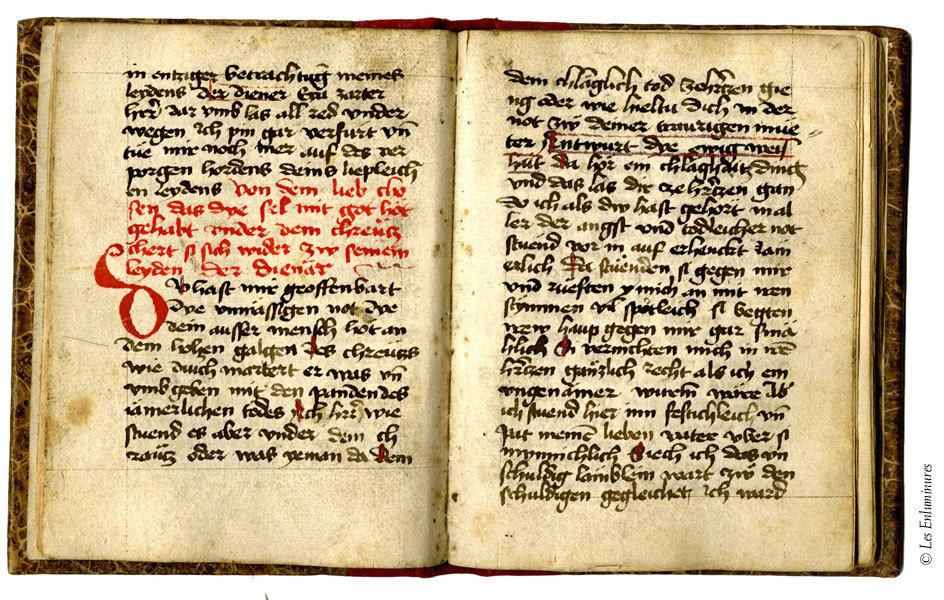 in emziger betrachtūg meines
leydens der diener Eya zarter
hr̄r dar vmb las all red vnder
wegen ich pin gar verfurt vn̄
tue mir noch mer auf des ver
porgen hordens deins liepleich
en leydens Von dem lieb cho
sen das dye sel mit got hot
gehabt vnder dem chreucz
chert si sich wider zw seinem
leyden der dienār
DV hast mir geoffenbart
dye vnmässigen not dye
dein ausser mensch hot an
dem hohen galgen des chreucis
wie duich martert er was vn̄
vmb geben mit den panden des
iamerlichen todes Ach hr̄r wie
stuend es aber vnder dem ch
räwcz oder was yeman da dem
dem chläglich tod ze hr̄czen gie
ng oder wie hieltu dich in der
not zw deiner traurigen mue
ter Antwurt dye ewig weis
hait da hor ein chläghaftz ding
vnd das las dir cze hr̄czen gan
do ich als dw hast gehort in al
ler der angst vnd todleicher not
stuend vor in auf erhenckt iam
erlich Da stuenden si gegen mir
vnd rueften mich an mit iren
stymmen vil spötleich si begten
irew haup gegen mir gar smä
hlich Si vernichten mich in irē
hr̄czen gänczlich recht als ich ein
vngenämer wurm wäre Ab
ich stuend hier inn festichleich vn̄
pat meinē lieben vater vber si
mynnichlich Siech ich das vn
schuldig lämblein wart zw den
schuldigen gegleichet ich ward
© Les Enluminures